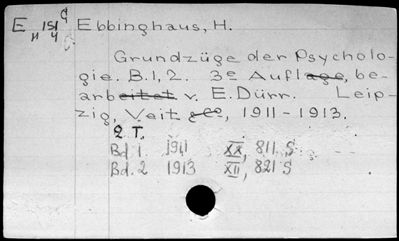 E 151 G Ebbinghaus, H.
H 4
Grundzüge der Psycholo-
gie. B.1, 2. 3e Auflage, be-
arbeitet v. E. Dürr. Leip-
zig, Veit & Co, 1911-1913.
2 T.
Bd. 1 1911 XX, 811 S
Bd. 2 1913 XII, 821 S